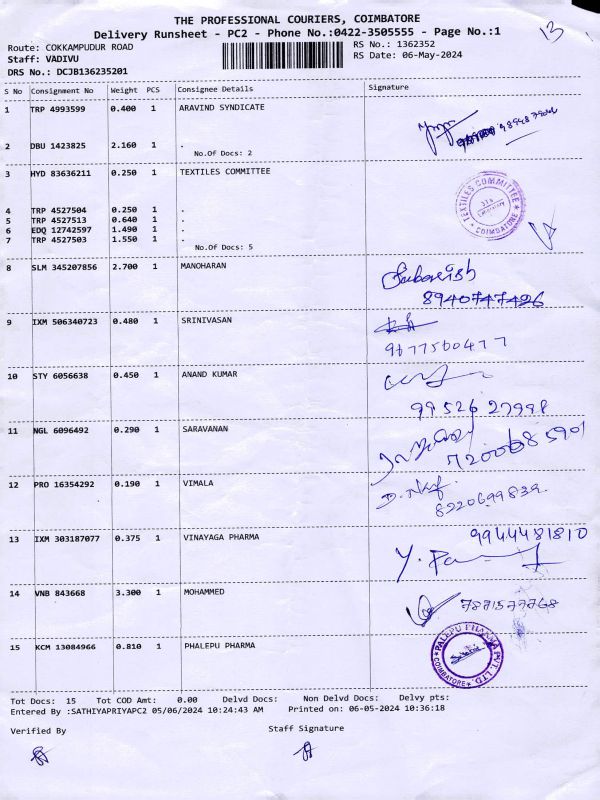 THE PROFESSIONAL COURIERS, COIMBATORE
13
Delivery Runsheet - PC2 - Phone No.:0422-3505555 - Page No.:1
Route: COKKAMPUDUR ROAD RS No.: 1362352
Staff: VADIVU RS Date: 06-May-2024
DRS No.: DCJB136235201
S No Consignment No Weight PCS Consignee Details Signature
1 TRP 4993599 0.400 1 ARAVIND SYNDICATE
2 DBU 1423825 2.160 1 .
No.Of Docs: 2
3 HYD 83636211 0.250 1 TEXTILES COMMITTEE
TEXTILES COMMITTEE
COIMBATORE
4 TRP 4527504 0.250 1 .
5 TRP 4527513 0.640 1 .
6 EDQ 12742597 1.490 1 .
7 TRP 4527503 1.550 1 .
No.Of Docs: 5
8 SLM 345207856 2.700 1 MANOHARAN
8940747426
9 IXM 506340723 0.480 1 SRINIVASAN
9677560477
10 STY 6056638 0.450 1 ANAND KUMAR
99526 27998
11 NGL 6096492 0.290 1 SARAVANAN
7200685901
12 PRO 16354292 0.190 1 VIMALA
8220699839.
13 IXM 303187077 0.375 1 VINAYAGA PHARMA
9944481810
14 VNB 843668 3.300 1 MOHAMMED
7871577768
15 KCM 13084966 0.810 1 PHALEPU PHARMA
PALEPU PHARMA PVT. LTD.
COIMBATORE
Tot Docs: 15 Tot COD Amt: 0.00 Delvd Docs: Non Delvd Docs: Delvy pts:
Entered By :SATHIYAPRIYAPC2 05/06/2024 10:24:43 AM Printed on: 06-05-2024 10:36:18
Verified By Staff Signature